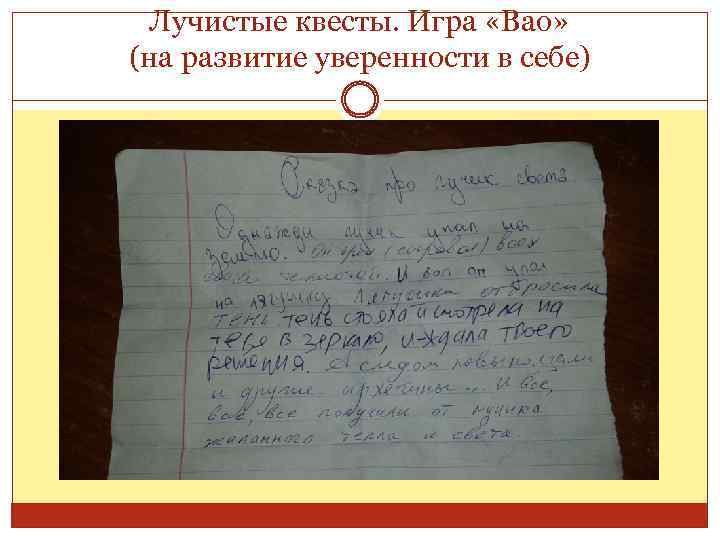 Лучистые квесты. Игра «Вао»
(на развитие уверенности в себе)
Сказка про лучик света
Однажды лучик упал на
землю. Он грел (согревал) всех
своей теплотой. И вот он упал
на лягушку Лягушка отбросила
тень тень стояла и смотрела на
тебя в зеркало, и ждала твоего
решения. А следом повыползали
и другие архетипы... И все,
все, все получили от лучика
желанного тепла и света.